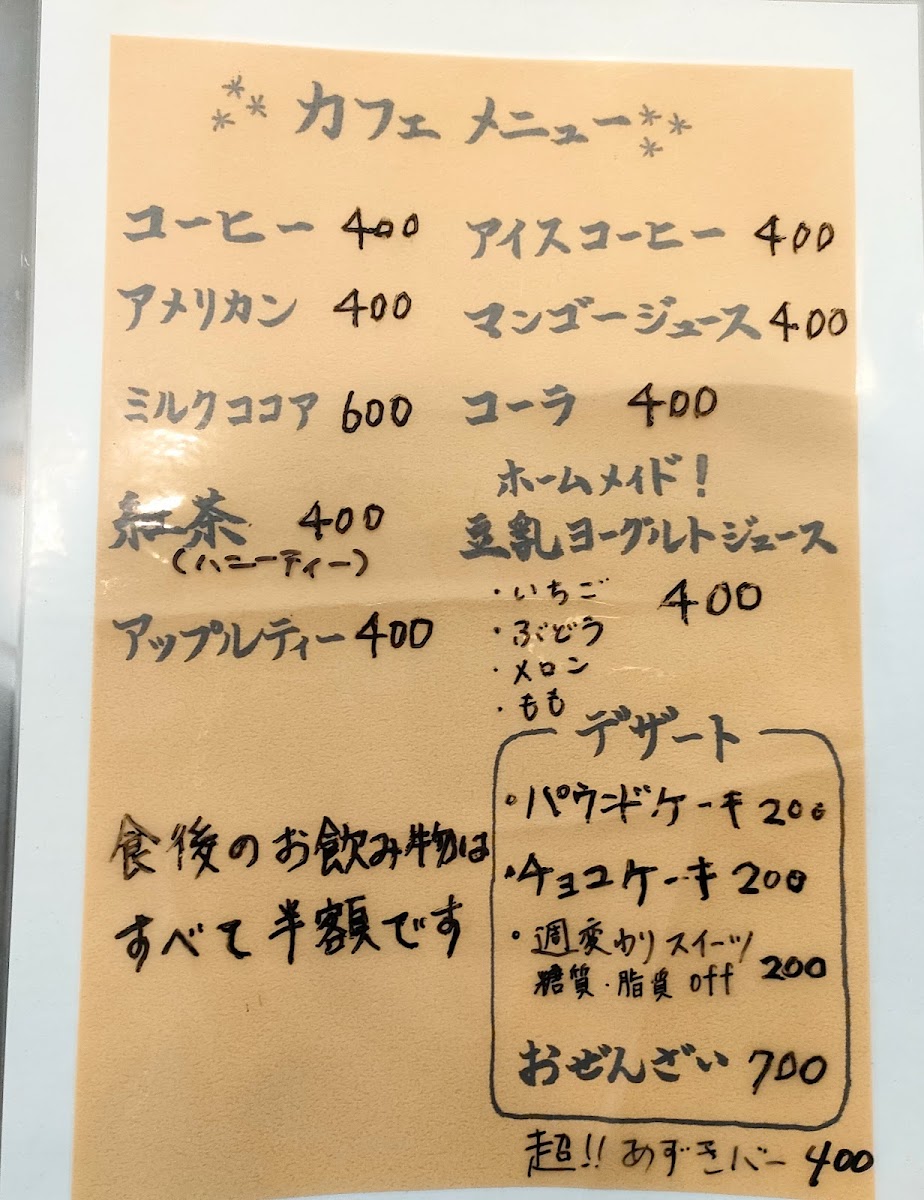 カフェ メニュー
コーヒー 400
アメリカン 400
ミルクココア 600
紅茶 400
(ハニーティー)
アップルティー 400
食後のお飲み物は
すべて半額です
アイスコーヒー 400
マンゴージュース 400
コーラ 400
ホームメイド!
豆乳ヨーグルトジュース
・いちご 400
・ぶどう
・メロン
・もも
デザート
・パウンドケーキ 200
・チョコケーキ 200
・週変わりスイーツ
糖質・脂質 off 200
おぜんざい 700
超!! あずきバー 400